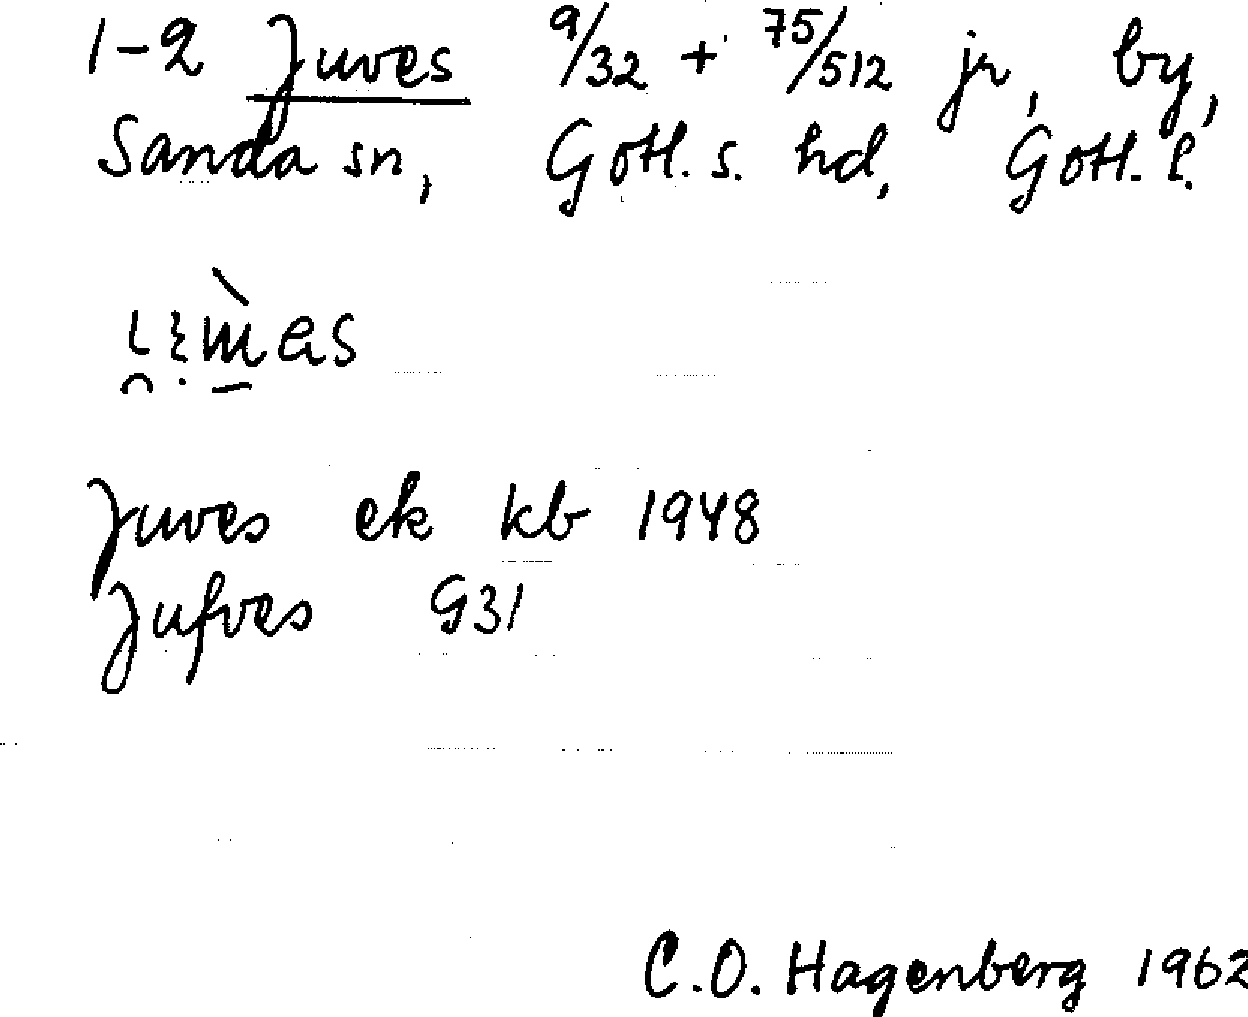 1-2 Juves 9/32 + 75/512 jr, by,
Sanda sn, Gotl. s. hd, Gotl. l.
Juves ek kb 1948
Jufves G31
C.O. Hagenberg 1962